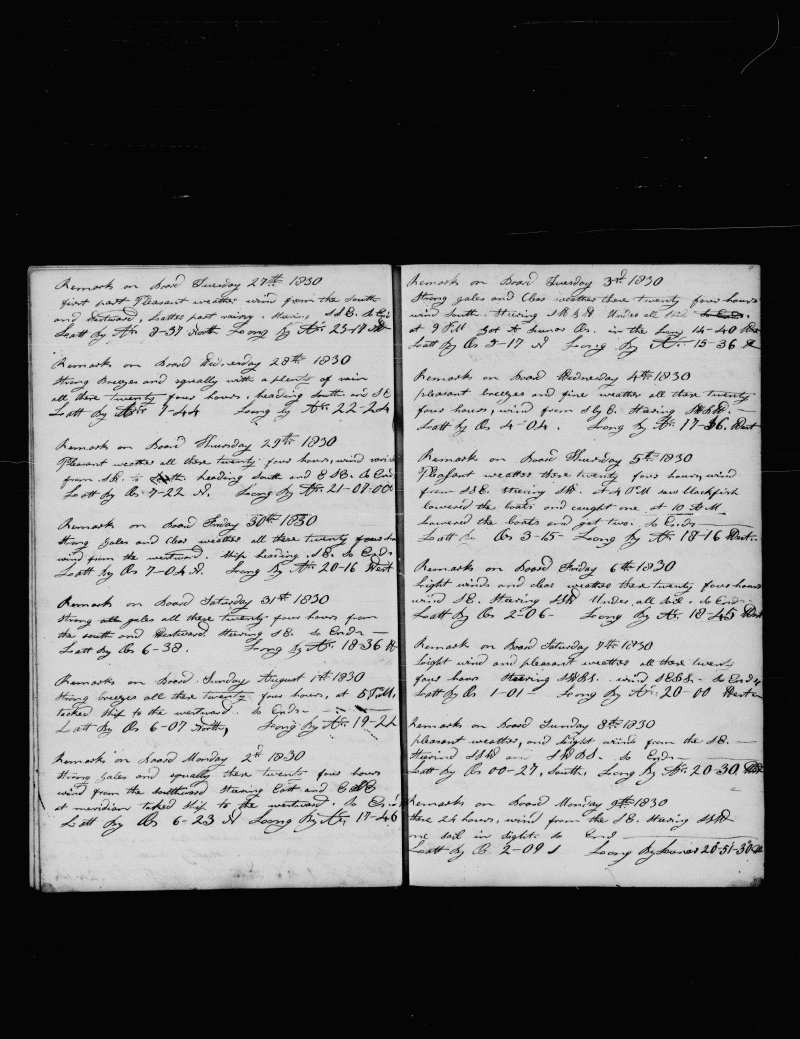 Remarks on Board Tuesday 27th 1830
first part Pleasant weather wind from the South
and Eastward, Latter part rainy. Steering SSE. So Ends
Latt by Ar 8-37 North Long by Ar 23-17
Remarks on Board Wednesday 28th 1830
Strong Breezes and squally with a plenty of rain
all these twenty four hours, heading South and SE
Latt by 7-44 Long by Ar 22-24
Remarks on Board Thursday 29th 1830
Pleasant weather all these twenty four hours, wind
from SW. to heading South and ESE. So Ends
Latt by Os 7-22 N. Long By Ar 21-07-00
Remarks on Board Friday 30th 1830
Strong Gales and Clear weather all these twenty four
wind from the westward. Ship heading SE. So Ends
Latt by Os 7-04 N. Long By Ar 20-16 West
Remarks on Board Saturday 31st 1830
Strong gales all these twenty four hours from
the south and Westward. Steering SE. So Ends
Latt By Os 6-38. Long By Ar 18-36
Remarks on Board Sunday August 1th 1830
Strong breezes all these twenty four hours, at 5 PM,
tacked Ship to the westward. So Ends
Latt By Os 6-07 North, Long By Ar 19-22
Remarks on Board Monday 2d 1830
Strong Gales and squally these twenty four hours
wind from the southward Steering East and ESE
at meridian tacked Ship to the westward. So Ends
Latt By Os 6-23 N Long By Ar 17-46
Remarks on Board Tuesday 3d 1830
Strong gales and Clear weather these twenty four hours
wind South. Steering Under all
at 9 PM Got A Lunar Os. in the Long 14-40
Latt By Os 5-17 N Long By Ar 15-36
Remarks on Board Wednesday 4th 1830
pleasant breezes and fine weather all these twenty
four hours, wind from S by E. Steering
Latt By Os 4-04. Long By Ar 17-36. West
Remarks on Board Thursday 5th 1830
Pleasant weather these twenty four hours, wind
from SSE. Steering SW. at 4 PM saw Blackfish
lowered the boats and caught one, at 10 AM
Lowered the boats and got two. So Ends
Latt By Os 3-15- Long By Ar 18-16 West
Remarks on Board Friday 6th 1830
Light winds and clear weather these twenty four hours
wind SE. Steering Under all Sail. So Ends
Latt By Os 2-06- Long By Ar 18-45 West
Remarks on Board Saturday 7th 1830
Light wind and pleasant weather all these twenty
four hours Steering wind So Ends
Latt By Os 1-01- Long By Ar. 20-00 West
Remarks on Board Sunday 8th 1830
pleasant weather, and Light winds from the SE.
Steering and So Ends
Latt By Os 00-27, South, Long By Ar. 20-30 West
Remarks on Board Monday 9th 1830
these 24 hours, wind from the SE. Steering
one sail in sight. So Ends
Latt By O. 2-09 S Long By Lunar 20-51-30